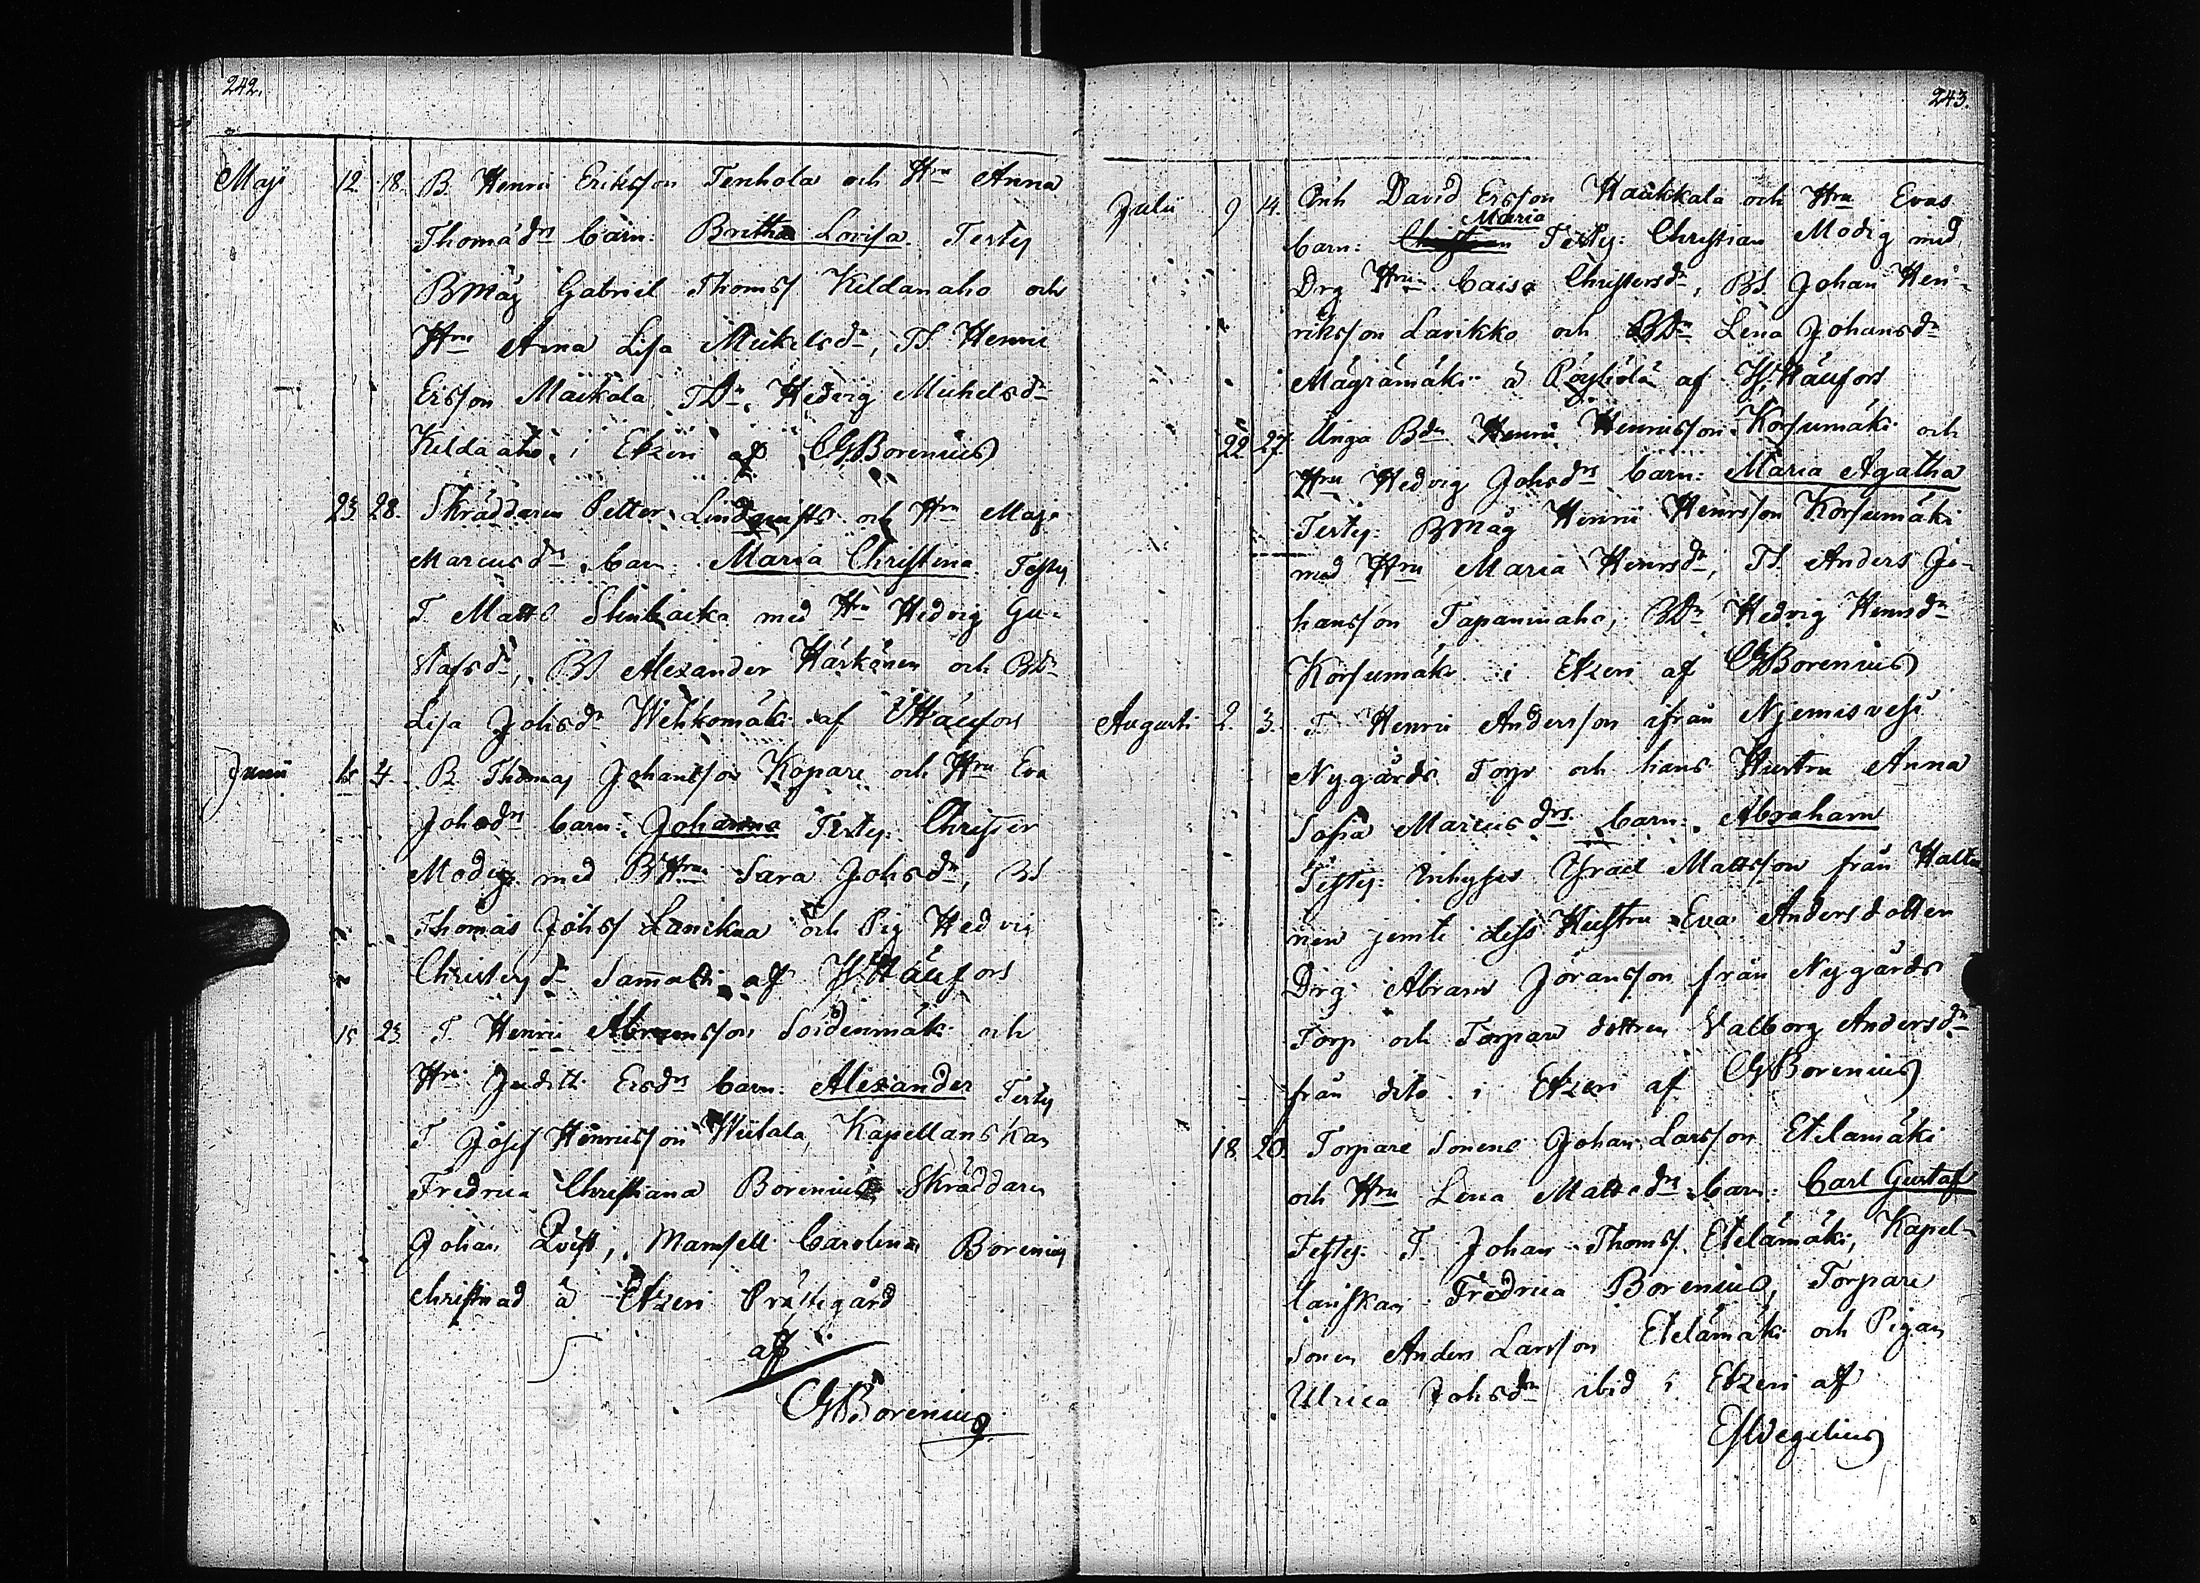 242.
Maji 12 18. B. Henric Eriksson Tenhola och Hru Anna
Thomædrs barn: Britha Lovisa. Testes
Bmåg Gabriel Thomss Kildanaho och
Hru Anna Lisa Michelsdr, TS Henric
Ersson Mäikälä TDr. Hedvig Michelsdr
Kildaaho i Etzeri af CGBorenius
23 28. Skräddaren Petter Lindqvists och Hru Maja
Marcusdrs barn. Maria Christina. Testes
T. Matts Skinbacka med Hru Hedvig Gu-
stafsdr, BS Alexander Härkönen och BDr
Lisa Johsdr Wehkomäki af Häufors
Junii 4. B Thomas Johansson Kopare och Hru Eva
Johsdrs barn: Johanna Testes: Christer
Modig med BHru Sara Johsdr, BS
Thomas Johss och Pig Hedvig
Christersdr Sammalti af Häufors
15 23 T. Henric Abramsson Soidenmäki och
Hru Judith Ersdrs barn: Alexander Testes
T Josef Henricsson Wiitala, Kapellanskan
Fredrica Christiana Borenius Skräddaren
Johan Qvist, Mamsell Carolina Borenius
christnad å Etzeri Prästegård
af
CGBorenius
243.
Julii 9 14. Inh David Ersson Haukkala och Hru Evas
Maria
barn: Christian Testes: Christian Modig med
Drg Hru Caisa Christersdr, BS Johan Hen-
riksson Lavikko och BDr Lena Johansdr
Mägrämäki å Pöyhölä af Häufors
22 27. Unga Bdn Henric Henricsson Korsumäki och
Hru Hedvig Johsdrs barn: Maria Agatha
Testes: BMåg Henric Henrsson Korsumäki
med Hru Maria Henrsdr, TS. Anders Jo-
hansson Tapaninaho, BDr Hedvig Henrsdr
Korsumäki i Etzeri af CGBorenius
Augusti 2. 3. T. Henric Andersson ifrån Njemisvesi
Nygårds Torp och hans Hustru Anna
Sofia Marcusdrs barn: Abraham
Testes: Inhyses Israel Mattsson från Haltu
nen jemte dess Hustru Eva Andersdotter
Drg Abram Jöransson från Nygårds
Torp och Torpare dottren Valborg Andersdr
från dito i Etzeri af CGBorenius
18. 20. Torpare Sonens Johan Larsson Etelämäki
och Hru Lena Mattsdrs barn: Carl Gustaf
Testes: T. Johan Thomss. Etelämäki, Kapel-
lanskan Fredrica Borenius, Torpare
Sonen Anders Larsson Etelämäki och Pigan
Ulrica Johsdr ibid i Etzeri af
Wegelius